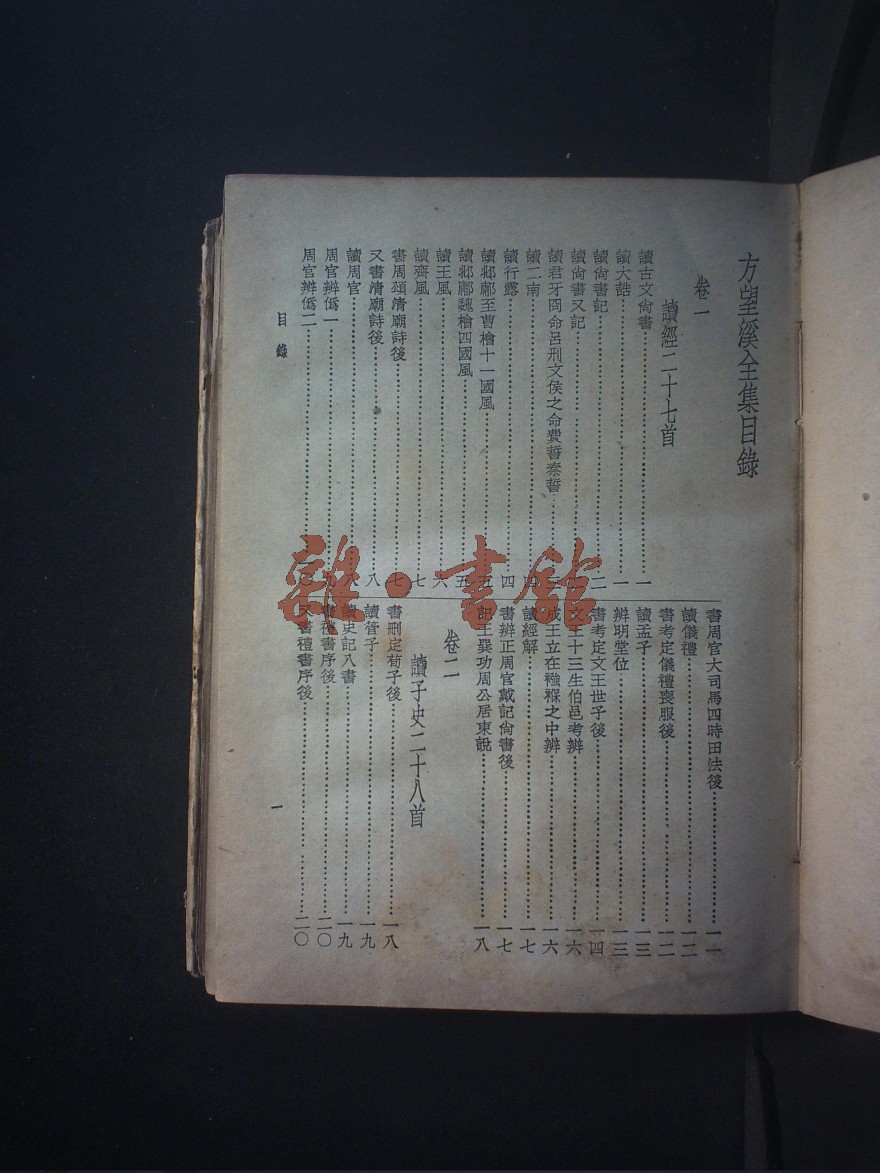 方望溪全集目錄
卷一
讀經二十七首
讀古文尙書⋯⋯一
讀大誥⋯⋯一
讀尙書記⋯⋯二
讀尙書又記
讀君牙冏命呂刑文侯之命費誓秦誓
讀二南⋯⋯四
讀行露⋯⋯四
讀邶鄘至曹檜十一國風⋯⋯五
讀邶鄘魏檜四國風⋯⋯五
讀王風⋯⋯六
讀齊風⋯⋯七
書周頌淸廟詩後⋯⋯七
又書淸廟詩後⋯⋯八
讀周官⋯⋯八
周官辨僞一⋯⋯九
周官辨僞二⋯⋯一〇
書周官大司馬四時田法後⋯⋯一一
讀儀禮⋯⋯一二
書考定儀禮喪服後⋯⋯一二
讀孟子⋯⋯一三
辨明堂位⋯⋯一三
書考定文王世子後⋯⋯一四
文王十三生伯邑考辨⋯⋯一六
成王立在襁褓之中辨⋯⋯一六
讀經解⋯⋯一七
書辨正周官戴記尙書後⋯⋯一七
記王巽功周公居東說⋯⋯一八
卷二
讀子史二十八首
書刪定荀子後⋯⋯一八
讀管子⋯⋯一九
讀史記八書⋯⋯一九
書禮書序後⋯⋯二〇
又書禮書序後⋯⋯二〇
目錄
一
雜·書館